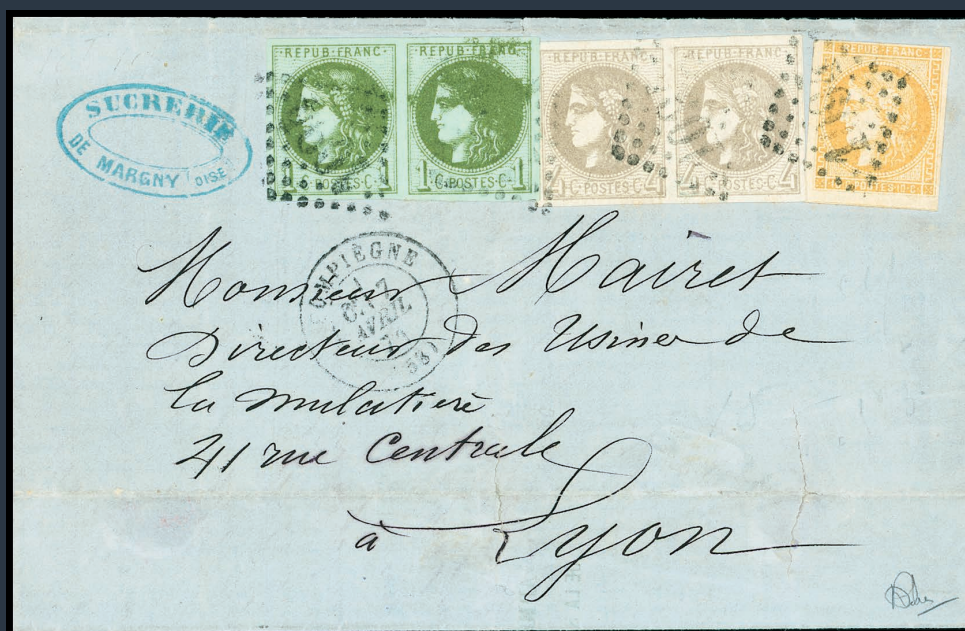 SUCRERIE
DE MARGNY OISE
REPUB·FRANC·
1 C·POSTES·C· 1
REPUB·FRANC·
1 C·POSTES·C· 1
REPUB·FRANC·
4 C·POSTES·C· 4
REPUB·FRANC·
4 C·POSTES·C· 4
REPUB·FRANC·
COMPIÈGNE
7
AVRIL
Monsieur Mairet
Directeur des Usines de
la mulatiere
41 rue Centrale
à Lyon